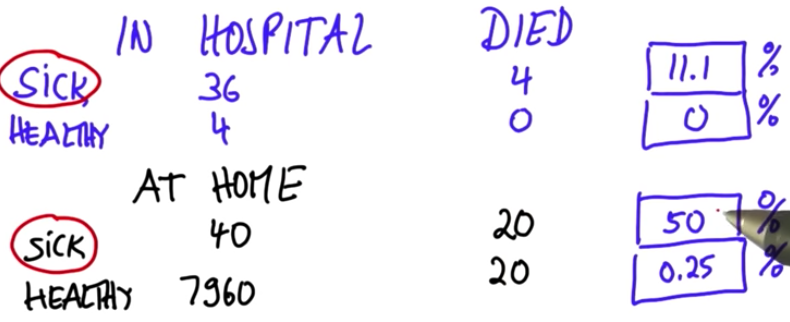 IN HOSPITAL DIED
SICK 36 4 11.1 %
HEALTHY 4 0 0 %
AT HOME
SICK 40 20 50 %
HEALTHY 7960 20 0.25 %